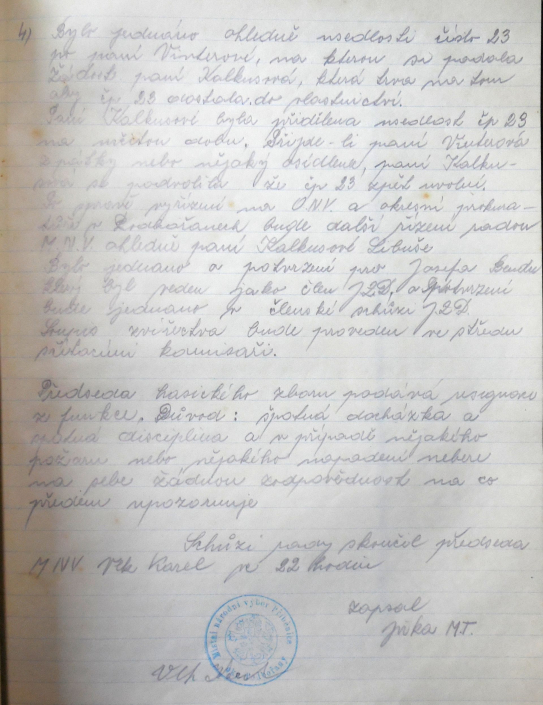 4) Bylo jednáno ohledně usedlosti číslo 23
po paní Vinterové, na kterou si podala
žádost paní Kalkusová, která trvá na tom
aby čp 23 dostala do vlastnictví.
Paní Kalkusové byla přidělena usedlost čp 23
na určitou dobu. Přijde-li paní Vinterová
zpátky nebo nějaký osídlenec, paní Kalku-
sová se podvolila že čp 23 zpět uvolní.
Po zprávě vyřízení na ONV. a okresní proku-
ratuře v bude další řízení radou
M.N.V. ohledně paní Kalkusové Libuše
Bylo jednáno o potvrzení pro Josefa
který byl veden jako člen JZD. Potvrzení
bude jednáno v členské schůzi JZD.
Soupis zvířectva bude proveden ve středu
sčítacími komisaři.
Předseda hasického sboru podává resignaci
z funkce. Důvod: špatná docházka a
špatná disciplina a v případě nějakého
požáru nebo nějakého napadení nebere
na sebe žádnou zodpovědnost na co
předem upozorňuje
Schůzi rady skončil předseda
M.N.V. Vlk Karel ve 22 hodin
zapsal
M.T.
Místní národní výbor
Vlk